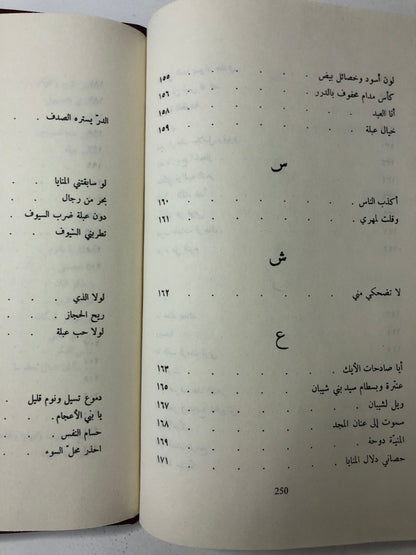 لون أسود وخصائل بيض . . . . . ١٥٥
كأس مدام محفوف بالدرر . . . . . ١٥٦
أنا العبد . . . . . . . . ١٥٨
خيال عبلة . . . . . . . ١٥٩
س
أكذب الناس . . . . . . . ١٦٠
وقلت لمهري . . . . . . . ١٦١
ش
لا تضحكي مني . . . . . . ١٦٢
ع
أيا صادحات الأيك . . . . . . ١٦٣
عنترة وبسطام سيد بني شيبان . . . . ١٦٥
ويل لشيبان . . . . . . . ١٦٧
سموت إلى عنان المجد . . . . . ١٦٨
المنيّة دوحة . . . . . . . ١٦٩
حصاني دلال المنايا . . . . . . ١٧١
250
الدرّ يستره الصدف . .
لو سابقتني المنايا . .
بحر من رجال . .
دون عبلة ضرب السيوف .
تطربني السيوف . .
لولا الذي . .
ريح الحجاز . .
لولا حب عبلة . .
دموع تسيل ونوم قليل .
يا بني الأعجام . .
حسام النفس . .
احذر محلّ السوء . .